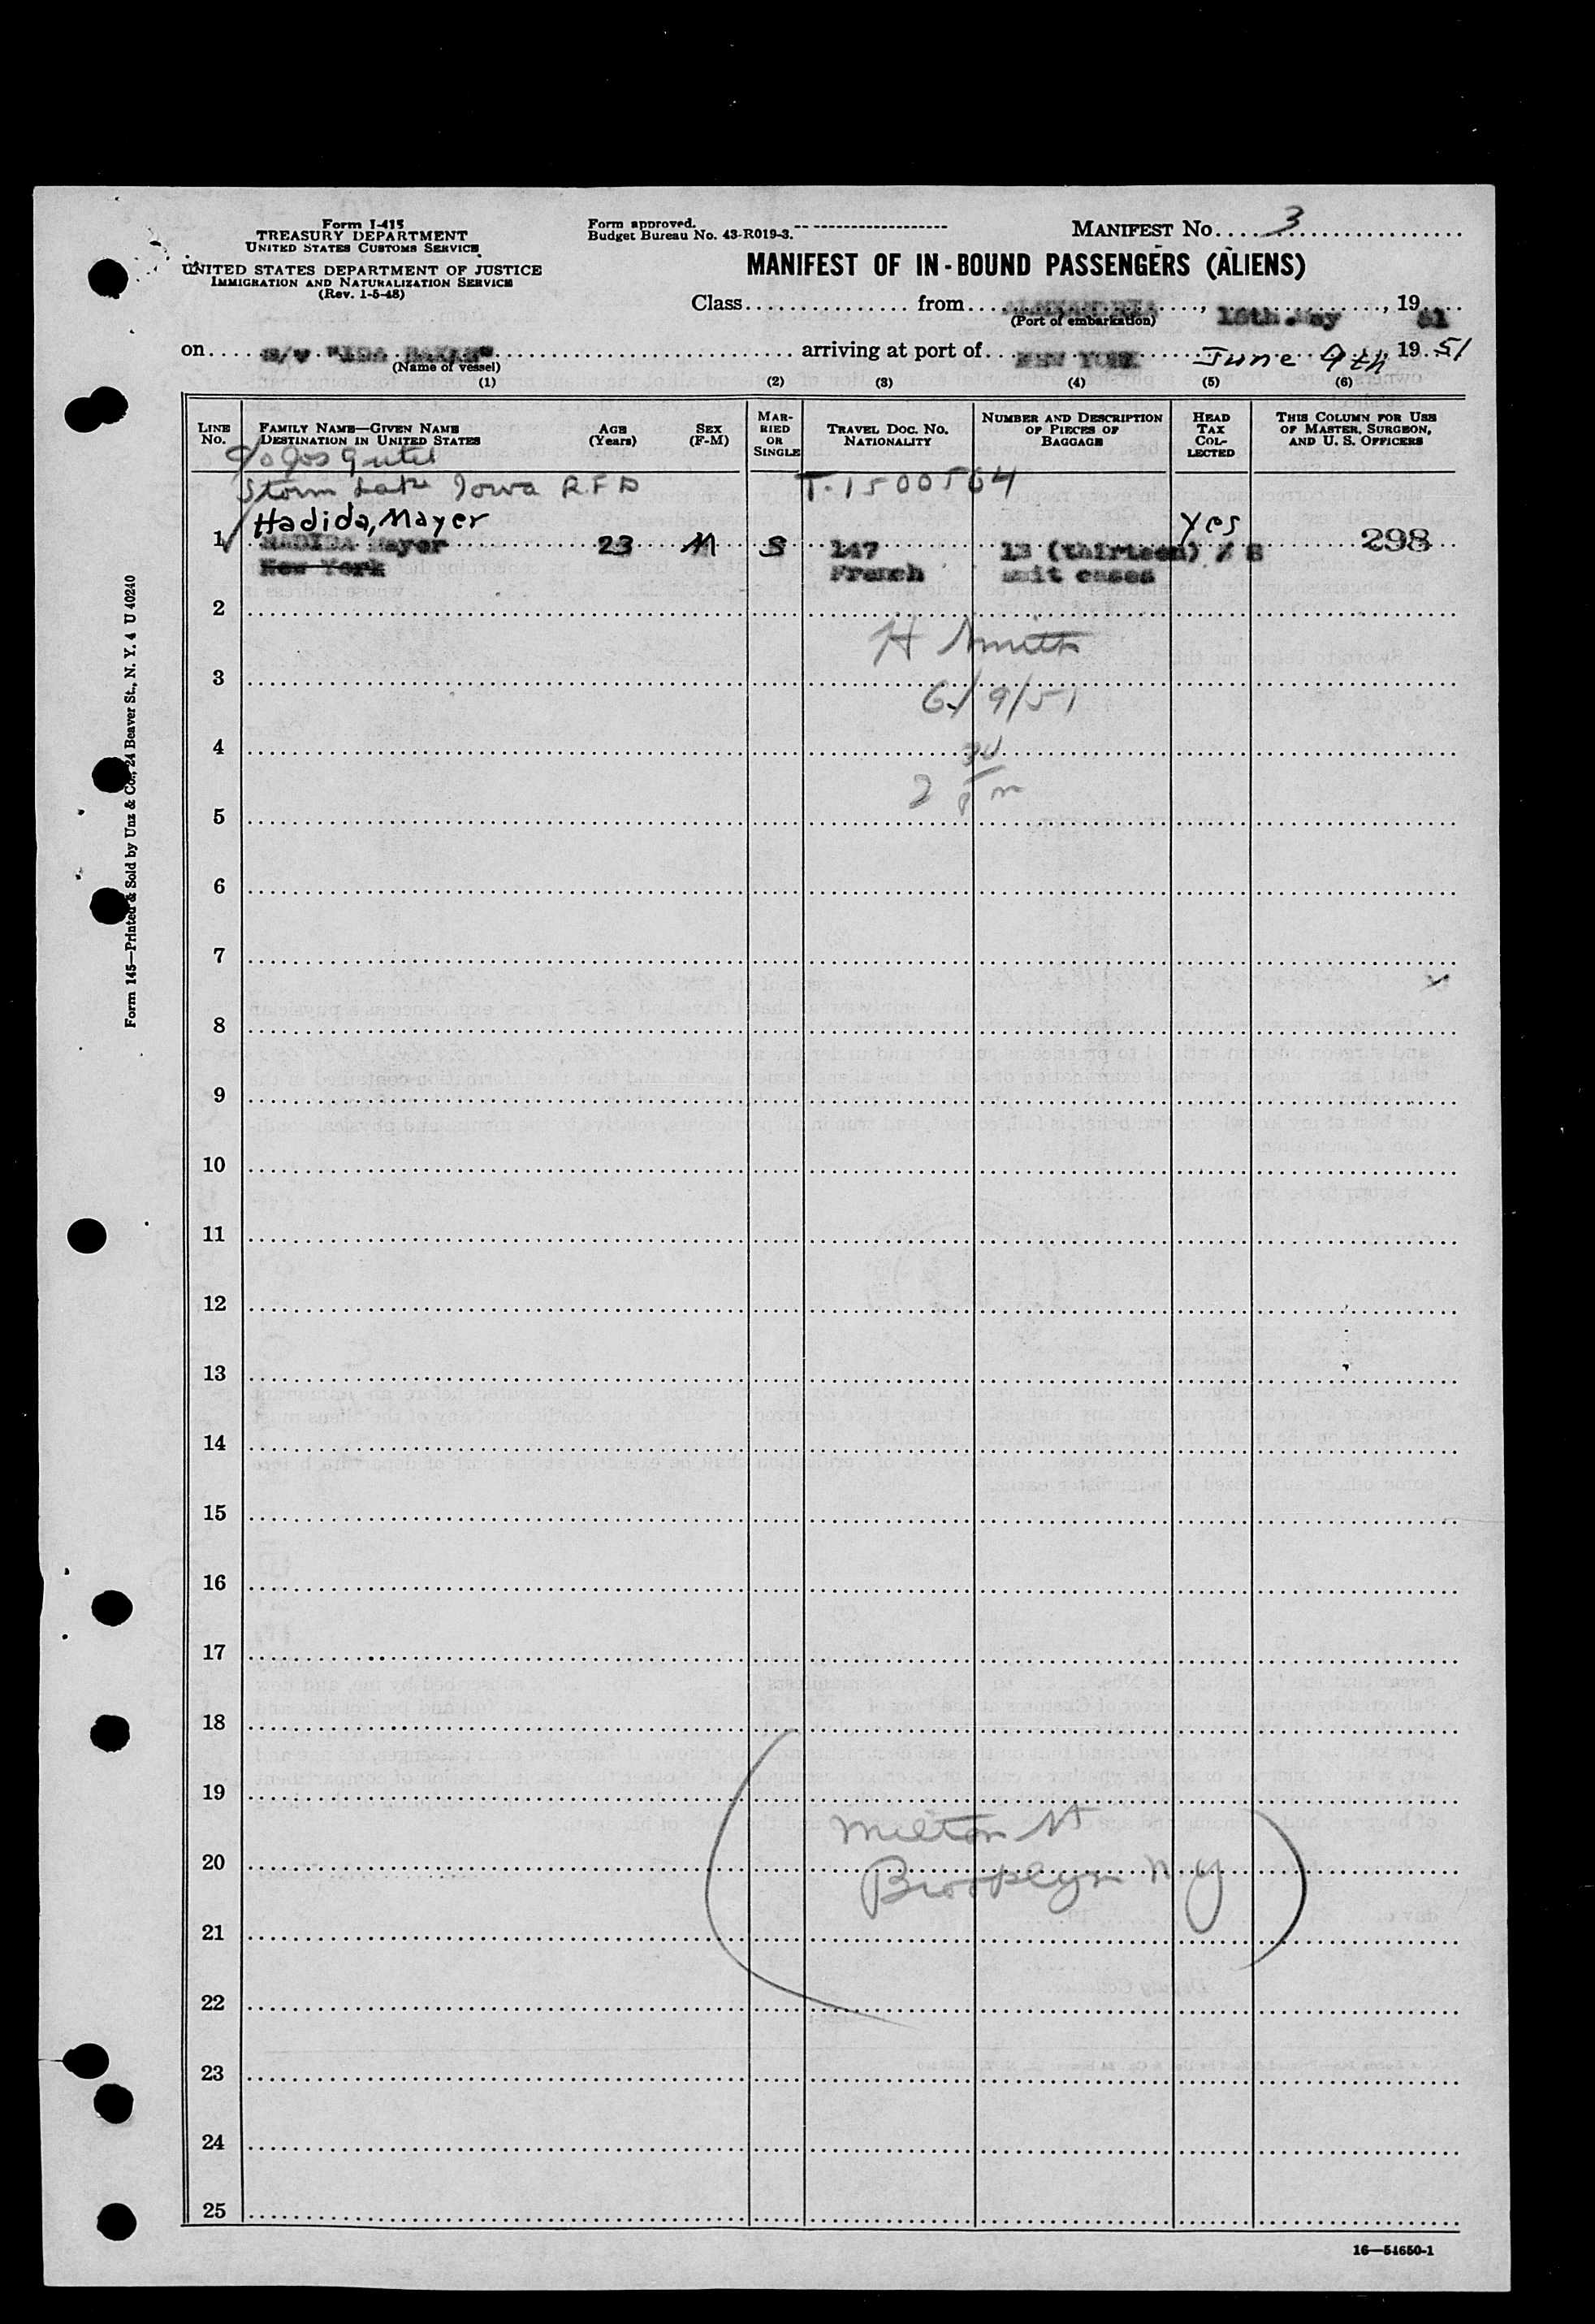 Form I-415
TREASURY DEPARTMENT
UNITED STATES CUSTOMS SERVICE
UNITED STATES DEPARTMENT OF JUSTICE
IMMIGRATION AND NATURALIZATION SERVICE
(Rev. 1-5-48)
Form approved.
Budget Bureau No. 43-R019-3.
MANIFEST No. 3
MANIFEST OF IN-BOUND PASSENGERS (ALIENS)
Class from ALEXANDRIA, 16th May, 19 51
(Port of embarkation)
on "IDA BAKKE" arriving at port of NEW YORK June 9th 19 51
(Name of vessel)
(1) (2) (3) (4) (5) (6)
LINE No.
FAMILY NAME—GIVEN NAME
DESTINATION IN UNITED STATES
AGE (Years)
SEX (F-M)
MARRIED OR SINGLE
TRAVEL DOC. NO.
NATIONALITY
NUMBER AND DESCRIPTION OF PIECES OF BAGGAGE
HEAD TAX COLLECTED
THIS COLUMN FOR USE OF MASTER, SURGEON, AND U. S. OFFICERS
c/o Jos
Storm Lake Iowa R.F.D T-1500564
Hadida, Mayer yes
1 HADIDA Mayer 23 M S 147 13 (thirteen) 298
New York French suit cases
2
H Smith
3
6/9/51
4
30
2 pm
5
6
7
8
9
10
11
12
13
14
15
16
17
18
19
Milton St
20
Brooklyn N.Y
21
22
23
24
25
16—54650-1
Form 145—Printed & Sold by Unz & Co., 24 Beaver St., N. Y. 4 U 40240